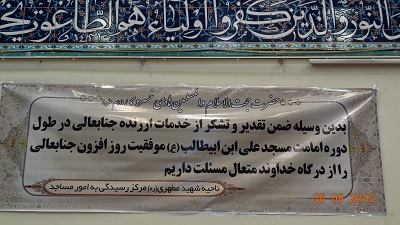 والذین کفروا اولیاءهم الطاغوت
حضرت حجت الاسلام والمسلمین هادی خسروی
بدین وسیله ضمن تقدیر و تشکر از خدمات ارزنده جنابعالی در طول
دوره امامت مسجد علی ابن ابیطالب (ع) موفقیت روز افزون جنابعالی
را از درگاه خداوند متعال مسئلت داریم
ناحیه شهید مطهری (ره) مرکز رسیدگی به امور مساجد